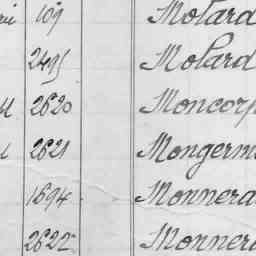 109 Molard
2495 Molard
2620 Moncorp
2621 Mongerm
1694 Monnera
2622 Monnera